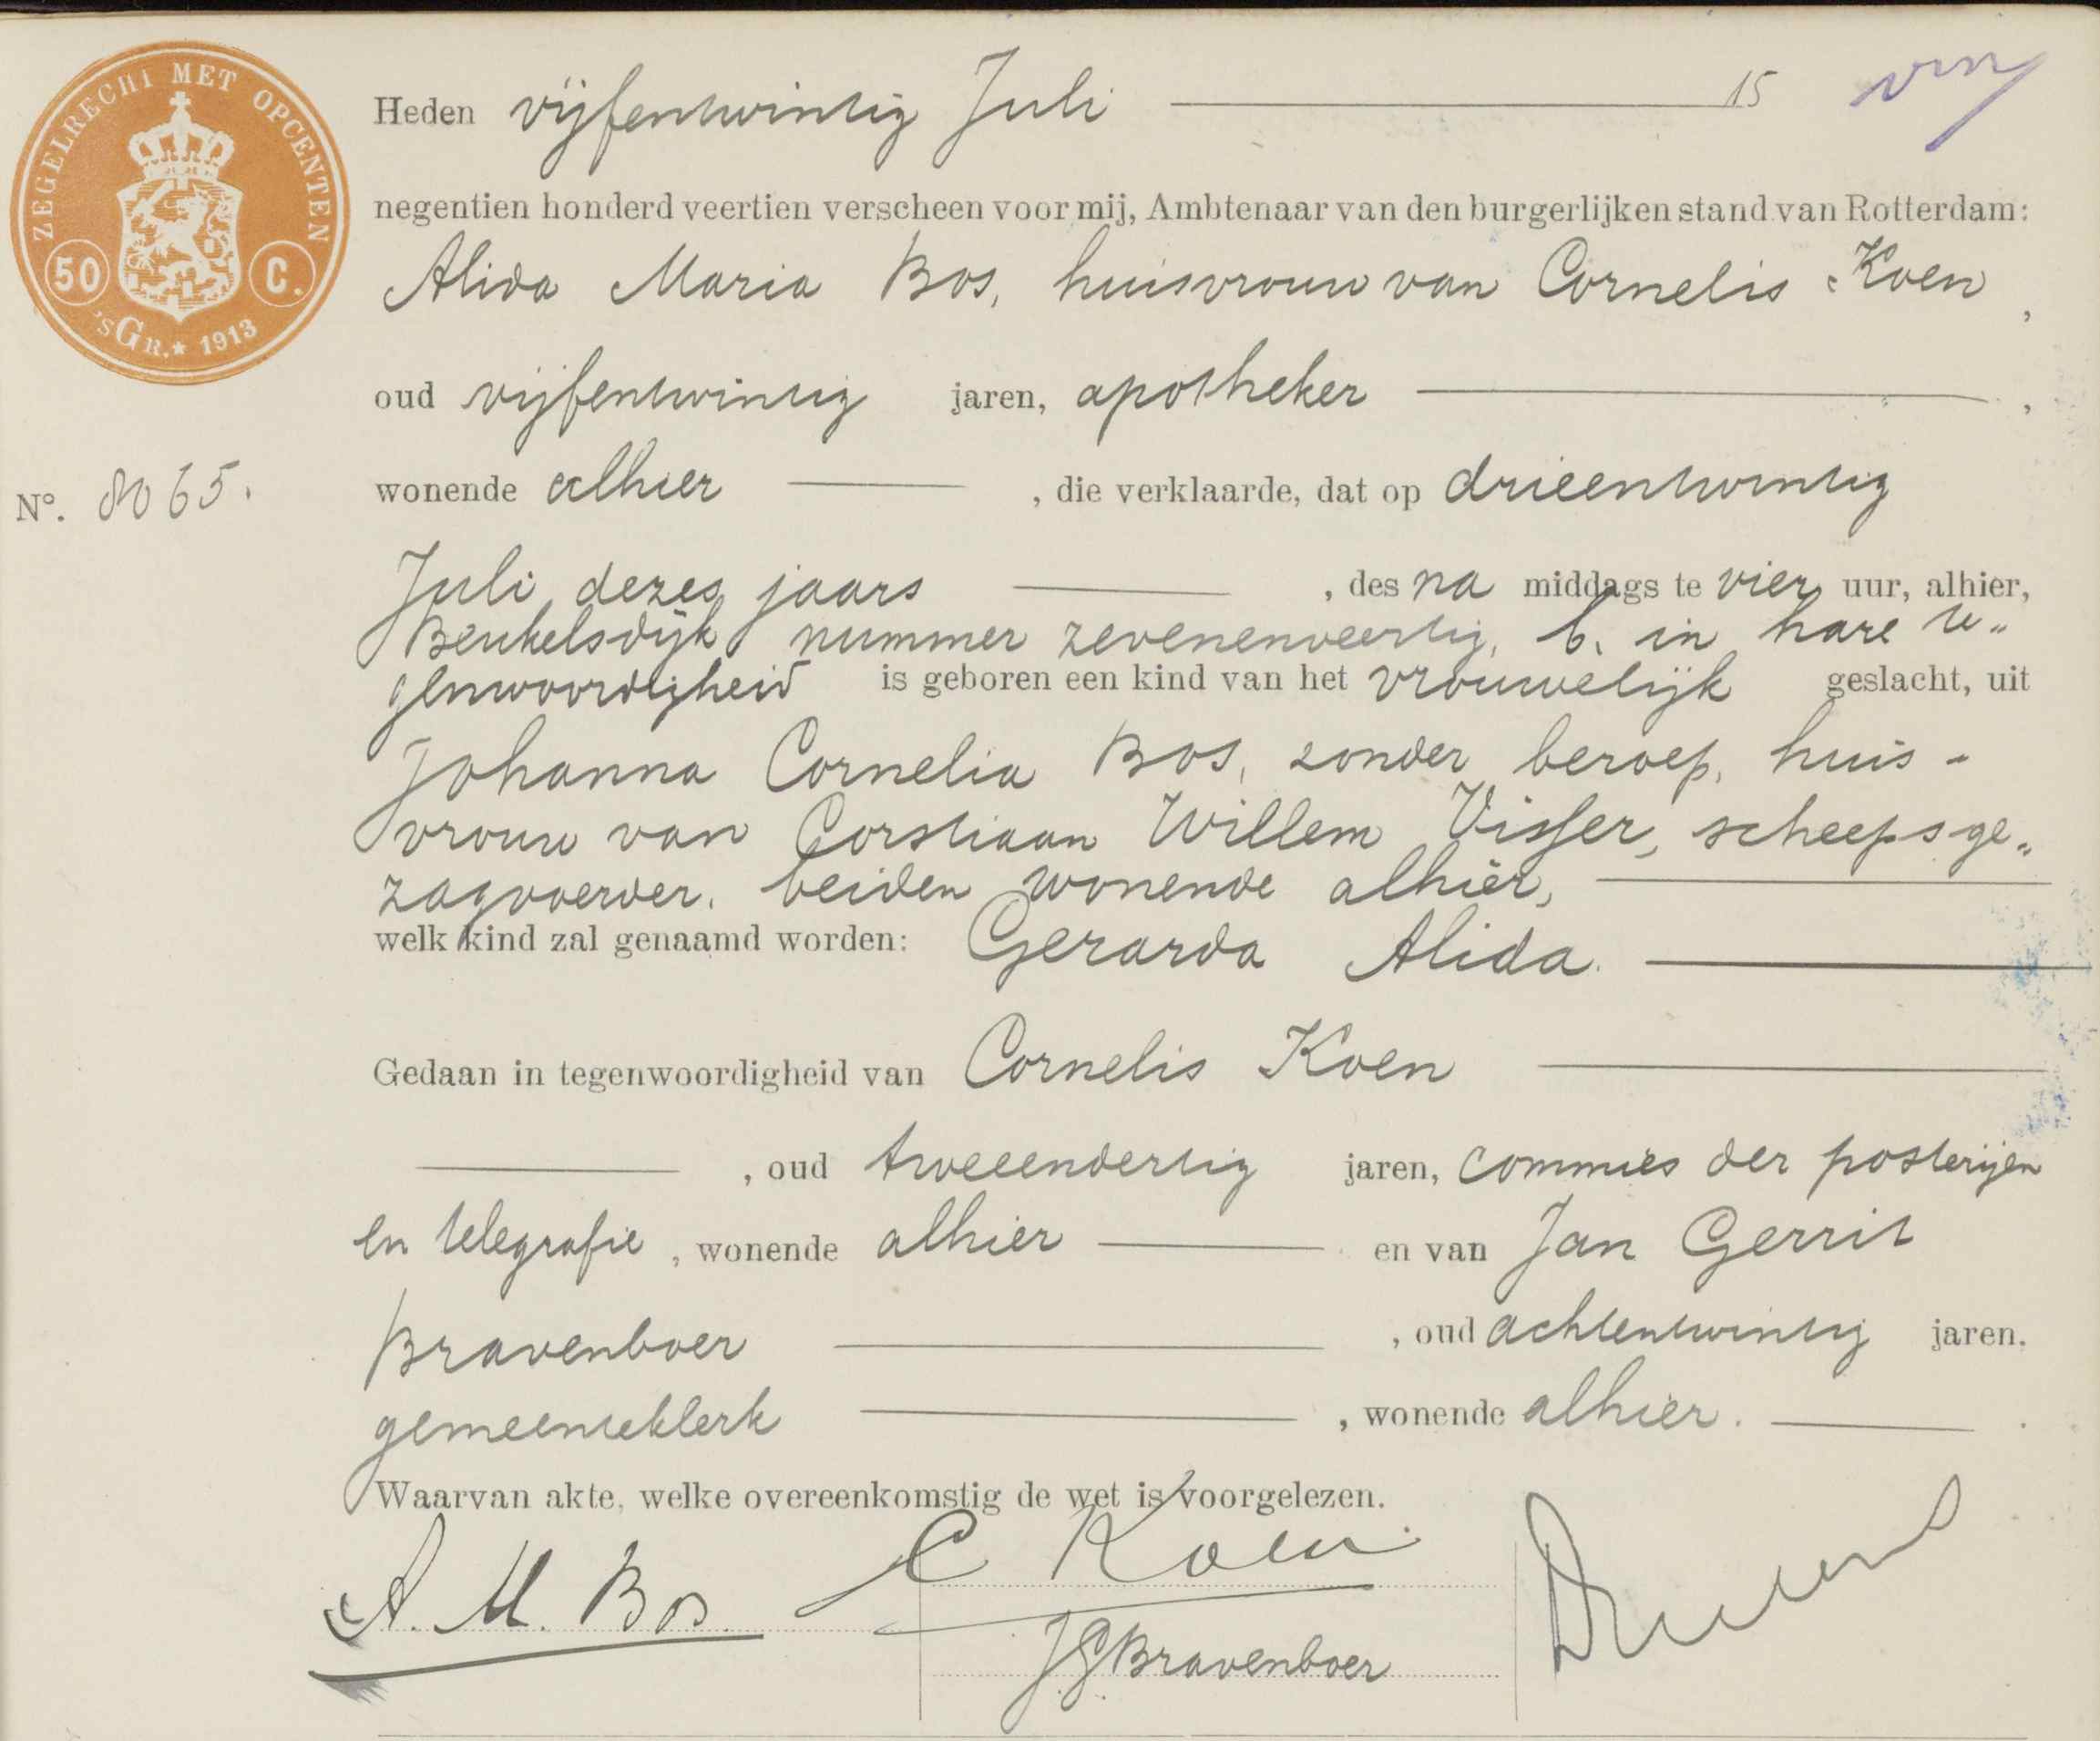 ZEGELRECHT MET OPCENTEN
50 C.
'SGR.* 1913
Heden vijfentwintig Juli 15
negentien honderd veertien verscheen voor mij, Ambtenaar van den burgerlijken stand van Rotterdam:
Alida Maria Bos, huisvrouw van Cornelis Koen,
oud vijfentwintig jaren, apotheker,
Nº. 8065. wonende alhier, die verklaarde, dat op drieentwintig
Juli dezes jaars, des na middags te vier uur, alhier,
Beukelsdijk nummer zevenenveertig, b. in hare te„
genwoordigheid is geboren een kind van het vrouwelijk geslacht, uit
Johanna Cornelia Bos, zonder beroep, huis-
vrouw van Corstiaan Willem Visser, scheepsge„
zagvoerder, beiden wonende alhier,
welk kind zal genaamd worden: Gerarda Alida.
Gedaan in tegenwoordigheid van Cornelis Koen
, oud tweeendertig jaren, commies der posterijen
en telegrafie, wonende alhier en van Jan Gerrit
Bravenboer, oud achtentwintig jaren.
gemeenteklerk, wonende alhier.
Waarvan akte, welke overeenkomstig de wet is voorgelezen.
A. M. Bos. C Koen
JGBravenboer